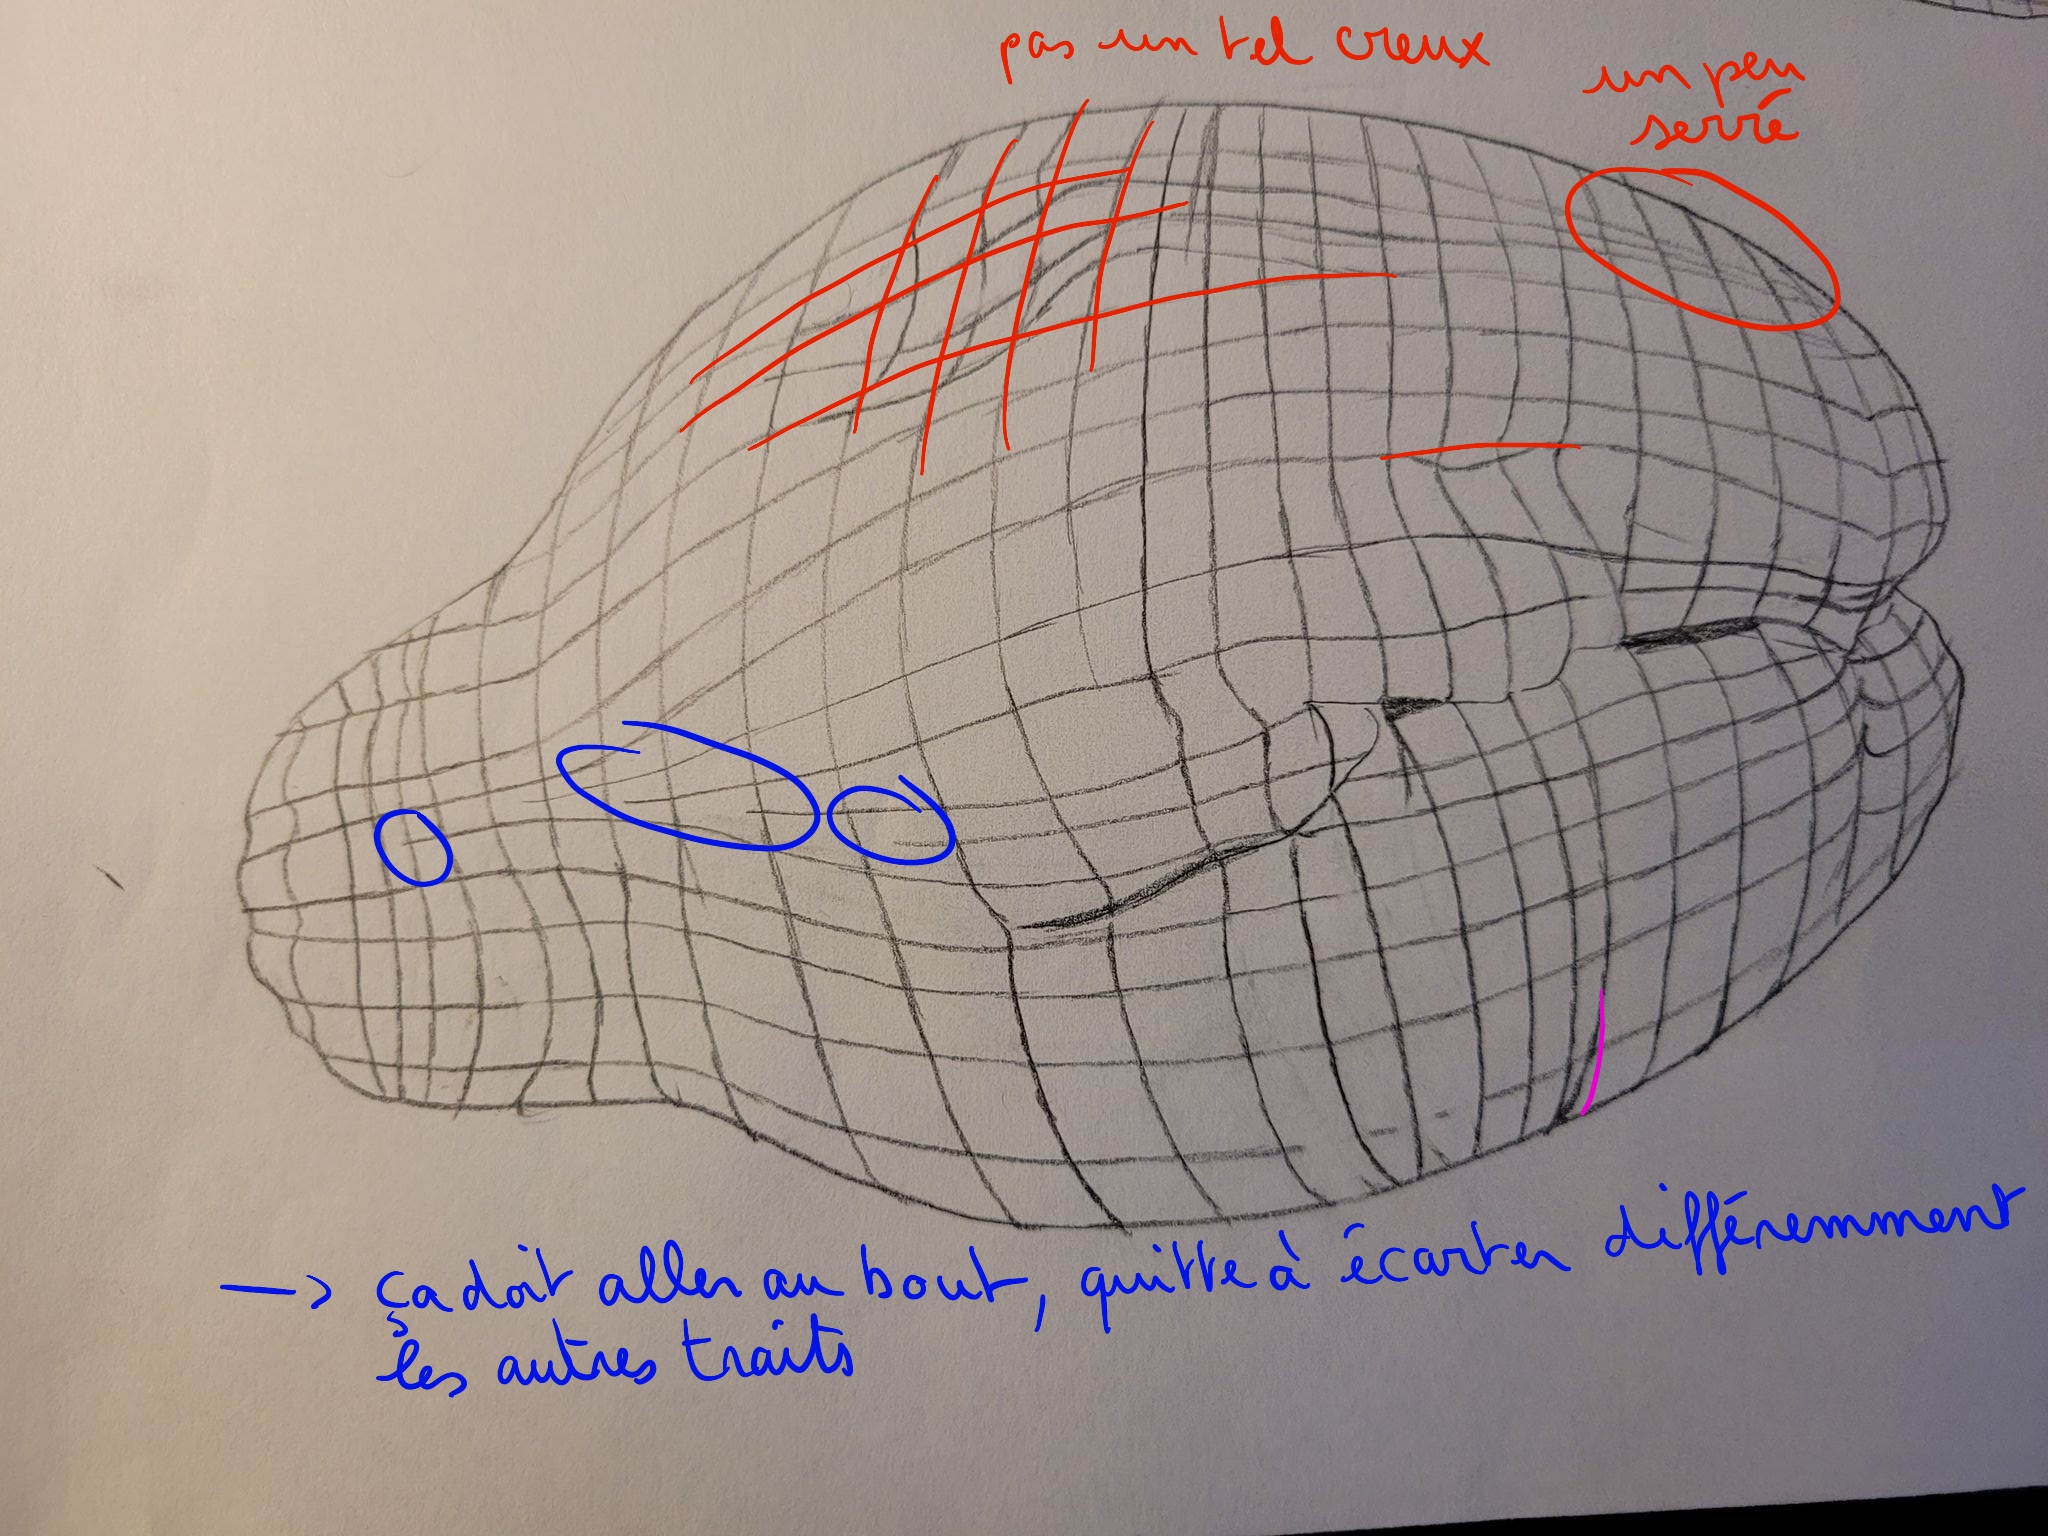 pas un tel creux
un peu
serré
—> ça doit aller au bout, quitte à écarter différemment
les autres traits